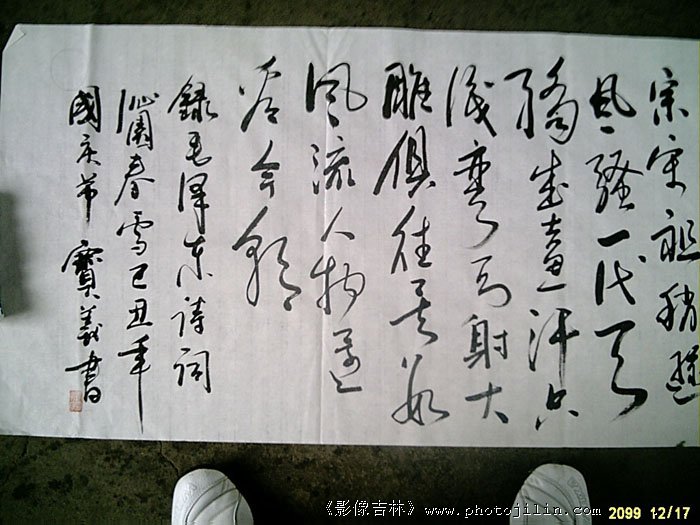 宗宋祖稍遜
风骚一代天
骄成吉思汗只
识弯弓射大
雕俱往矣数
风流人物还
看今朝
録毛泽东诗词
沁園春雪己丑年
國庆节 寶義書
《影像吉林》www.photojilin.com
2099 12/17